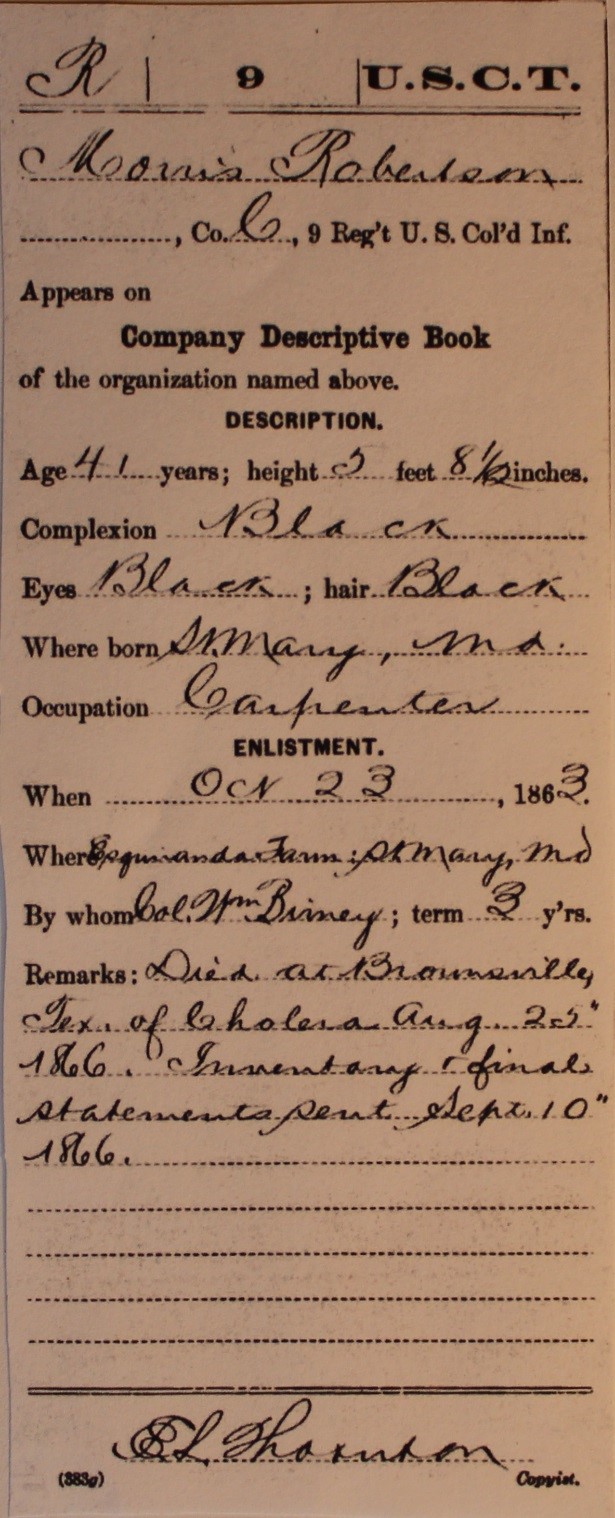 R | 9 | U.S.C.T.
Morris Robertson
, Co. C, 9 Reg't U. S. Col'd Inf.
Appears on
Company Descriptive Book
of the organization named above.
DESCRIPTION.
Age 41 years; height 5 feet 8 1/2 inches.
Complexion Black
Eyes Black ; hair Black
Where born St. Mary, Md.
Occupation Carpenter
ENLISTMENT.
When Oct 23, 1863.
Where Farm; St Mary, Md
By whom Col. Wm Birney ; term 3 y'rs.
Remarks: Died at Brownsville,
Tex. of Cholera Aug. 25"
1866. Inventory & final
statements sent Sept. 10"
1866.
E L Thornton
(383g) Copyist.